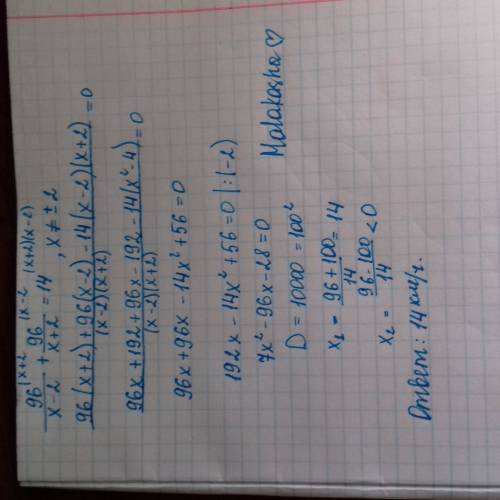 96|x+2 / x-2 + 96|x-2 / x+2 = 14|(x+2)(x-2) , x ≠ ± 2
96(x+2)+96(x-2)-14(x-2)(x+2) / (x-2)(x+2) = 0
96x+192+96x-192-14(x²-4) / (x-2)(x+2) = 0
96x+96x-14x²+56=0
192x-14x²+56=0 |:(-2)
7x²-96x-28=0
D = 10000 = 100²
x₁ = 96+100 / 14 = 14
x₂ = 96-100 / 14 < 0
Ответ: 14 км/ч.
Malakasha ♡